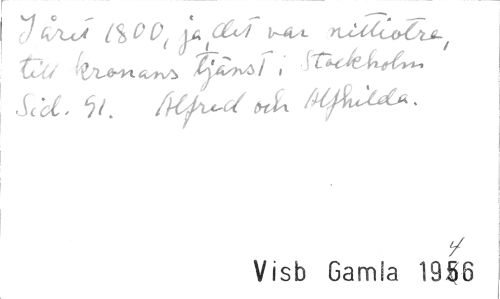 I året 1800, ja, det var nittiotre,
till kronans tjänst i Stockholm
Sid. 91. Alfred och Alfhilda.
4
Visb Gamla 1956